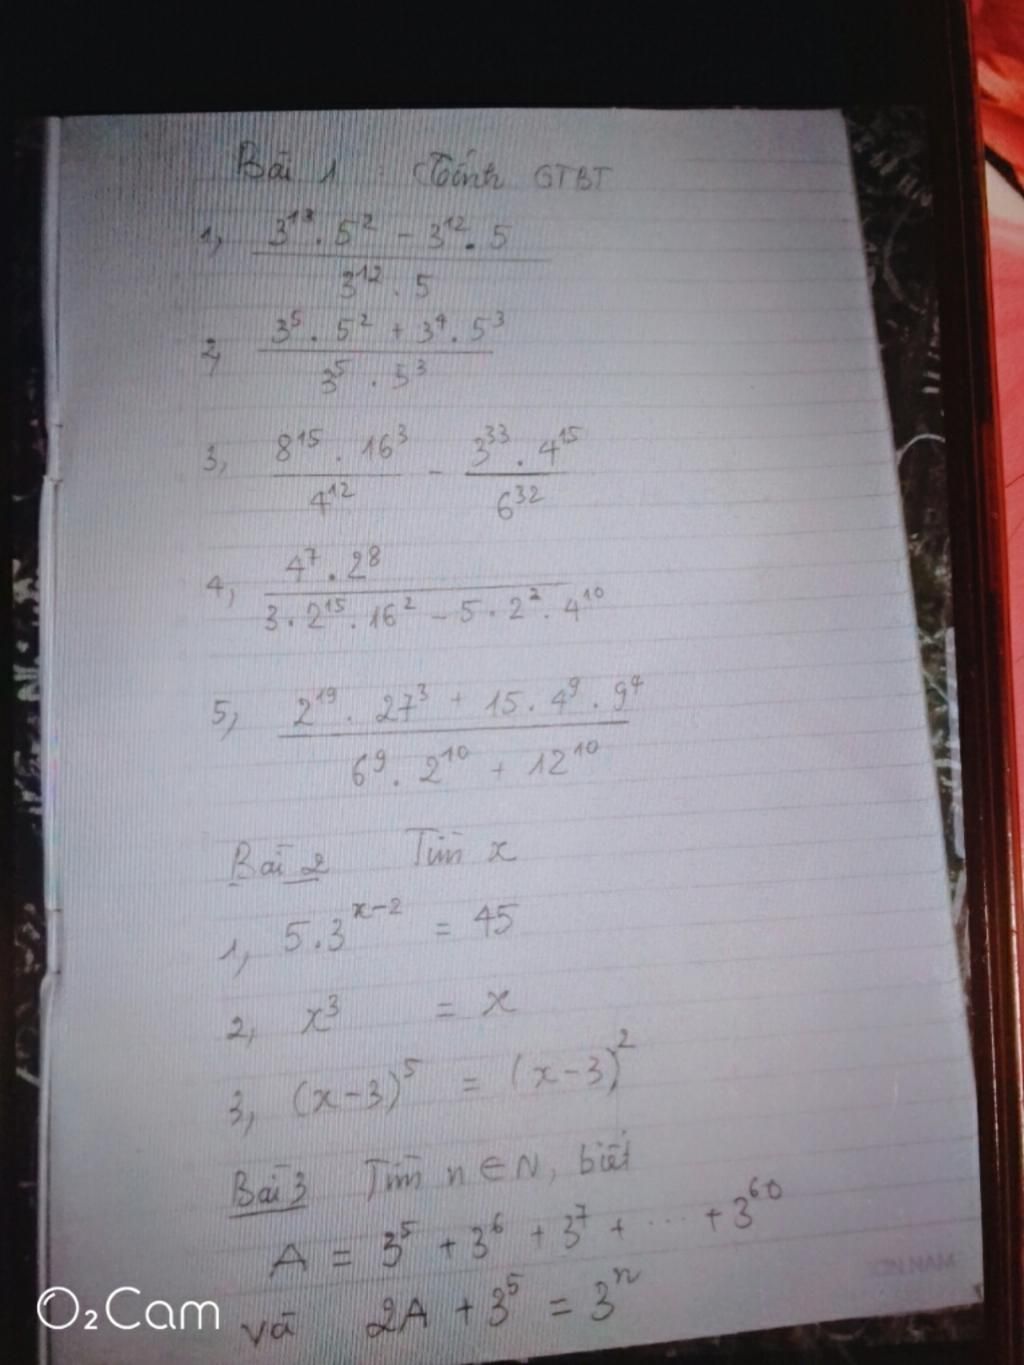 Bài 1 : Tính GTBT
1, (3^13 . 5^2 - 3^12 . 5) / (3^12 . 5)
2, (3^5 . 5^2 + 3^4 . 5^3) / (3^5 . 5^3)
3, (8^15 . 16^3) / 4^12 - (3^33 . 4^15) / 6^32
4, (4^7 . 2^8) / (3 . 2^15 . 16^2 - 5 . 2^2 . 4^10)
5, (2^19 . 27^3 + 15 . 4^9 . 9^4) / (6^9 . 2^10 + 12^10)
Bài 2 Tìm x
1, 5.3^(x-2) = 45
2, x^3 = x
3, (x-3)^5 = (x-3)^2
Bài 3 Tìm n ∈ N, biết
A = 3^5 + 3^6 + 3^7 + ... + 3^60
và 2A + 3^5 = 3^n
O2Cam